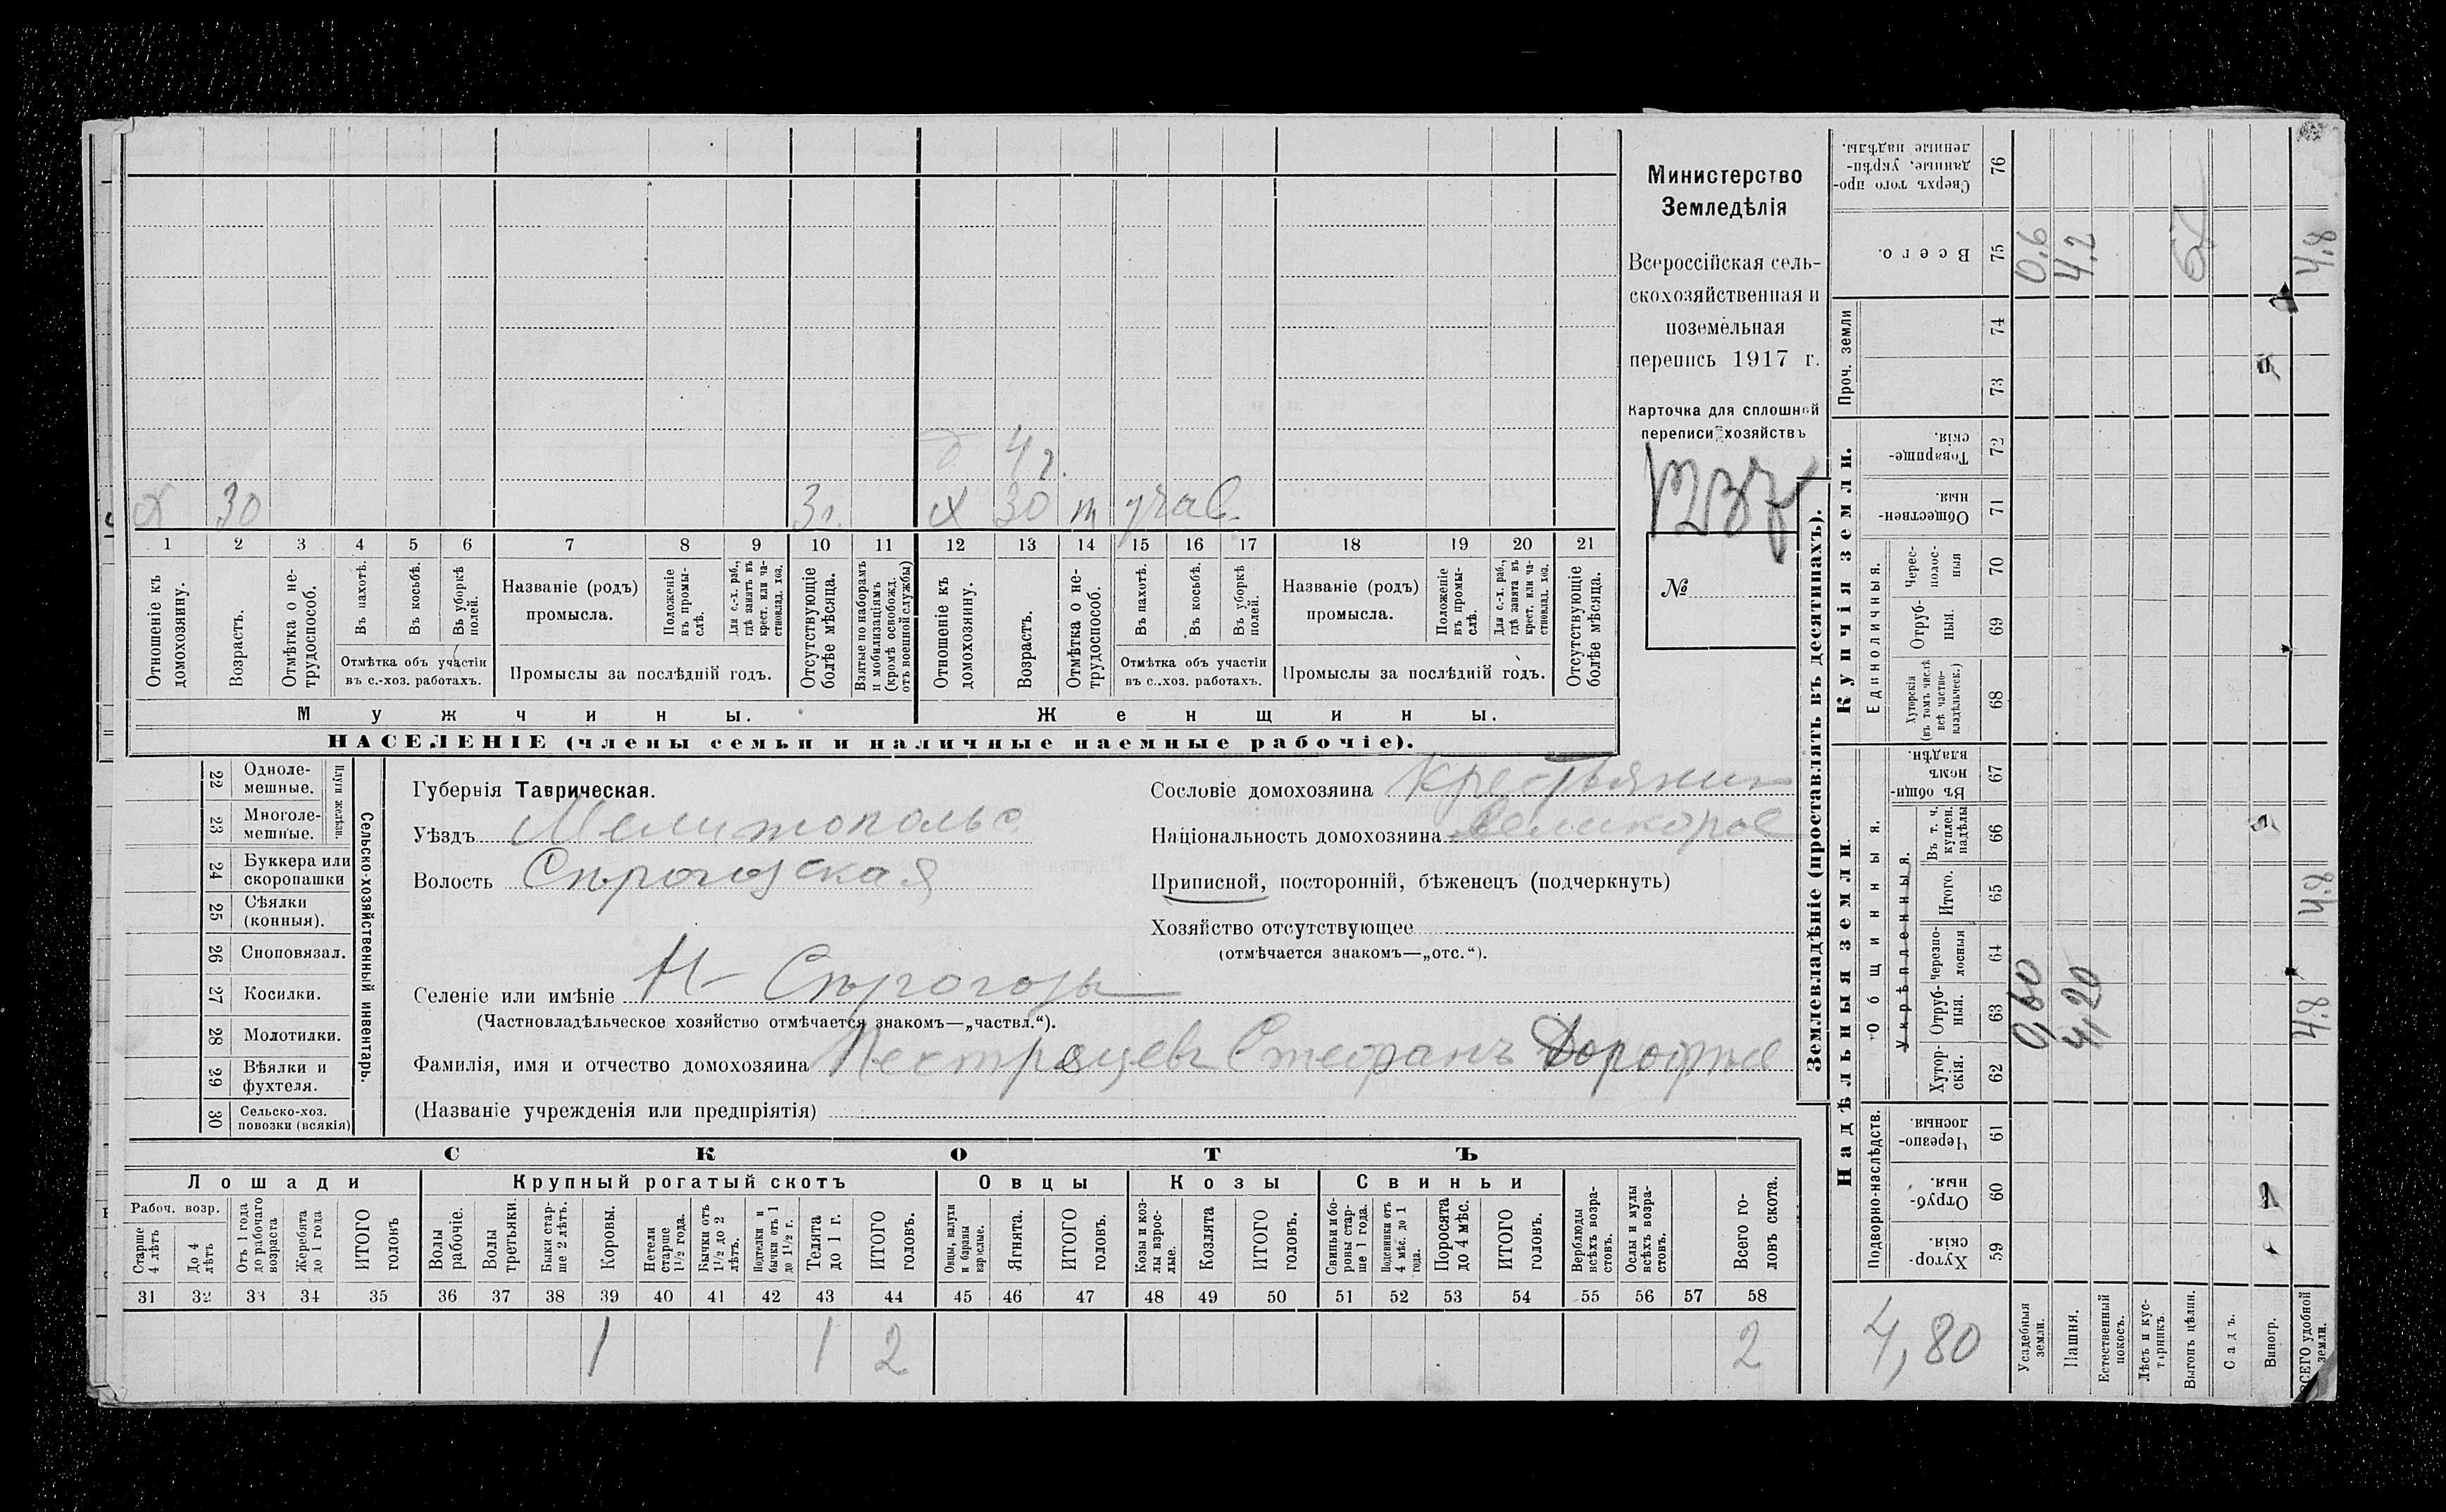 Министерство
Земледѣлія
Всероссійская сель-
скохозяйственная и
поземельная
перепись 1917 г.
Карточка для сплошной
переписи хозяйствъ
№
д 4 г.
х 30 3 г. х 30 т учав.
1 2 3 4 5 6 7 8 9 10 11 12 13 14 15 16 17 18 19 20 21
Отношеніе къ домохозяину.
Возрастъ.
Отмѣтка о не-трудоспособ.
Въ пахотѣ.
Въ косьбѣ.
Въ уборкѣ полей.
Отмѣтка объ участіи
въ с.-хоз. работахъ.
Названіе (родъ)
промысла.
Положеніе въ промы-слѣ.
Для с.-х. раб., гдѣ занятъ въ крест. или ча-стновлад. хоз.
Промыслы за послѣдній годъ.
Отсутствующіе болѣе мѣсяца.
Взятые по наборамъ и мобилизаціямъ (кромѣ освобожд. отъ военной службы)
Отношеніе къ домохозяину.
Возрастъ.
Отмѣтка о не-трудоспособ.
Въ пахотѣ.
Въ косьбѣ.
Въ уборкѣ полей.
Отмѣтка объ участіи
въ с.-хоз. работахъ.
Названіе (родъ)
промысла.
Положеніе въ промы-слѣ.
Для с.-х. раб., гдѣ занята въ крест. или ча-стновлад. хоз.
Промыслы за послѣдній годъ.
Отсутствующіе болѣе мѣсяца.
Мужчины.
Женщины.
НАСЕЛЕНІЕ (члены семьи и наличные наемные рабочіе).
Сельско-хозяйственный инвентарь.
Плуги желѣзн.
22 Одноле-мешные.
23 Многоле-мешные.
24 Буккера или скоропашки
25 Сѣялки (конныя).
26 Сноповязал.
27 Косилки.
28 Молотилки.
29 Вѣялки и фухтеля.
30 Сельско-хоз. повозки (всякія)
Губернія Таврическая.
Уѣздъ Мелитопольс
Волость Сѣрогозская
Селеніе или имѣніе Н- Сѣрогозы
(Частновладѣльческое хозяйство отмѣчается знакомъ—„частвл.“).
Фамилія, имя и отчество домохозяина Пестрецевъ Стефанъ Дорофѣе
(Названіе учрежденія или предпріятія)
Сословіе домохозяина Крестьянин
Національность домохозяина великорос
Приписной, посторонній, бѣженецъ (подчеркнуть)
Хозяйство отсутствующее
(отмѣчается знакомъ—„отс.“).
СКОТЪ
Лошади
Крупный рогатый скотъ
Овцы
Козы
Свиньи
Рабоч. возр.
Старше 4 лѣтъ
До 4 лѣтъ
Отъ 1 года до рабочаго возраста
Жеребята до 1 года
ИТОГО головъ
Волы рабочіе.
Волы третьяки.
Быки стар-ше 2 лѣтъ.
Коровы.
Нетели старше 1½ года.
Бычки отъ 1½ до 2 лѣтъ.
Подтелки и бычки отъ 1 до 1½ г.
Телята до 1 г.
ИТОГО головъ.
Овцы, валухи и бараны взрослые.
Ягнята.
ИТОГО головъ.
Козы и коз-лы взрос-лые.
Козлята
ИТОГО головъ.
Свиньи и бо-ровы стар-ше 1 года.
Подсвинки отъ 4 мѣс. до 1 года.
Поросята до 4 мѣс.
ИТОГО головъ.
Верблюды всѣхъ возра-стовъ.
Ослы и мулы всѣхъ возра-стовъ.
Всего го-ловъ скота.
31 32 33 34 35 36 37 38 39 40 41 42 43 44 45 46 47 48 49 50 51 52 53 54 55 56 57 58
1 1 2 2
Землевладѣніе (проставлять въ десятинахъ).
Купчія земли.
Надѣльныя земли.
Сверхъ того про-данные, укрѣп-ленные надѣлы. 76
Всего. 75 0,6 4,2 4,8
Проч. земли 74
73
Товарище-скія. 72
Обществен-ныя. 71
Единоличныя.
Черес-полос-ныя 70
Отруб-ныя. 69
Хуторскія (въ томъ числѣ всѣ частно-владѣльческ.) 68
Общинныя.
Въ общи-номъ владѣн. 67
Укрѣпленныя.
Въ т. ч. куплен. надѣлы 66
Итого. 65 4,8
Черезпо-лосныя 64
Отруб-ныя. 63 0,60 4,20 4,8
Хутор-скія. 62
Подворно-наслѣдств.
Черезпо-лосныя 61
Отруб-ныя. 60
Хутор-скія. 59
4,80
Усадебныя земли.
Пашня.
Естественный покосъ.
Лѣсъ и кус-тарникъ.
Выгонъ цѣлин.
Садъ.
Виногр.
ВСЕГО удобной земли.